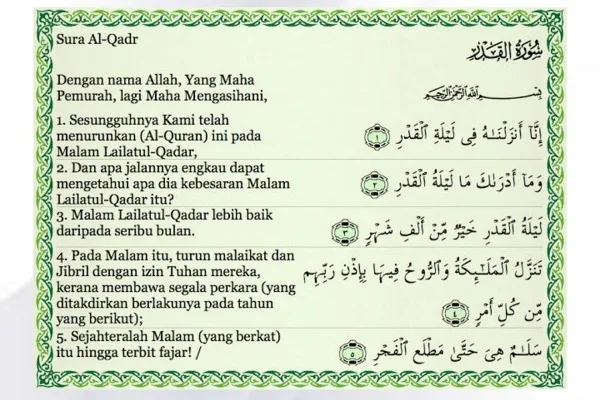 Sura Al-Qadr
سُورَةُ القَدْرِ
Dengan nama Allah, Yang Maha
Pemurah, lagi Maha Mengasihani,
بِسْمِ اللَّهِ الرَّحْمَٰنِ الرَّحِيمِ
1. Sesungguhnya Kami telah
menurunkan (Al-Quran) ini pada
Malam Lailatul-Qadar,
إِنَّآ أَنزَلْنَـٰهُ فِى لَيْلَةِ ٱلْقَدْرِ ١
2. Dan apa jalannya engkau dapat
mengetahui apa dia kebesaran Malam
Lailatul-Qadar itu?
وَمَآ أَدْرَىٰكَ مَا لَيْلَةُ ٱلْقَدْرِ ٢
3. Malam Lailatul-Qadar lebih baik
daripada seribu bulan.
لَيْلَةُ ٱلْقَدْرِ خَيْرٌ مِّنْ أَلْفِ شَهْرٍ ٣
4. Pada Malam itu, turun malaikat dan
Jibril dengan izin Tuhan mereka,
kerana membawa segala perkara (yang
ditakdirkan berlakunya pada tahun
yang berikut);
تَنَزَّلُ ٱلْمَلَـٰٓئِكَةُ وَٱلرُّوحُ فِيهَا بِإِذْنِ رَبِّهِم
مِّن كُلِّ أَمْرٍ ٤
5. Sejahteralah Malam (yang berkat)
itu hingga terbit fajar! /
سَلَـٰمٌ هِىَ حَتَّىٰ مَطْلَعِ ٱلْفَجْرِ ٥